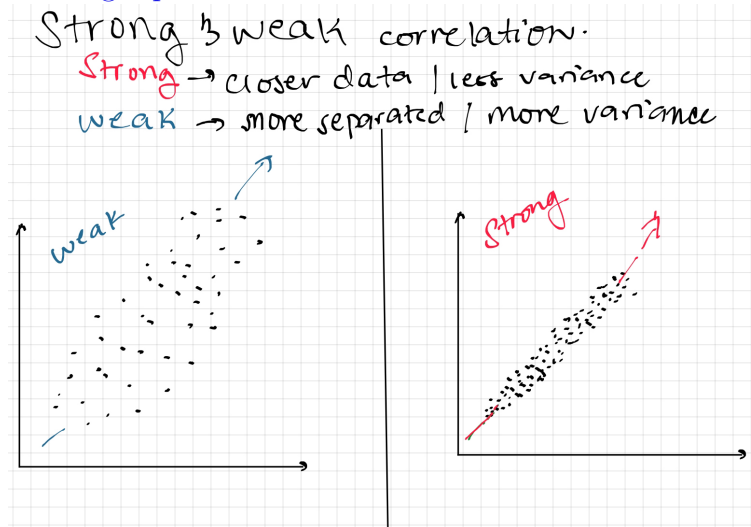 Strong & weak correlation.
Strong → closer data | less variance
weak → more separated | more variance
weak
Strong